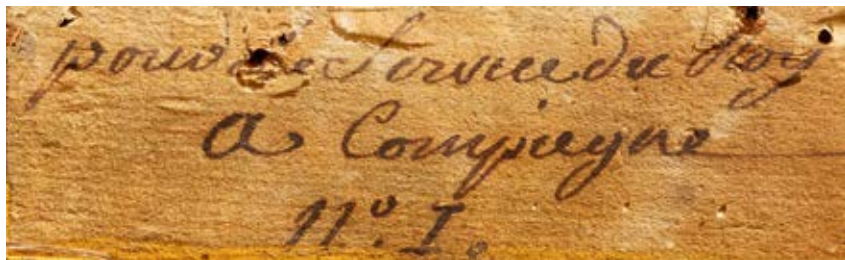 pour Le Service du Roy
a Compiegne
N.º I.